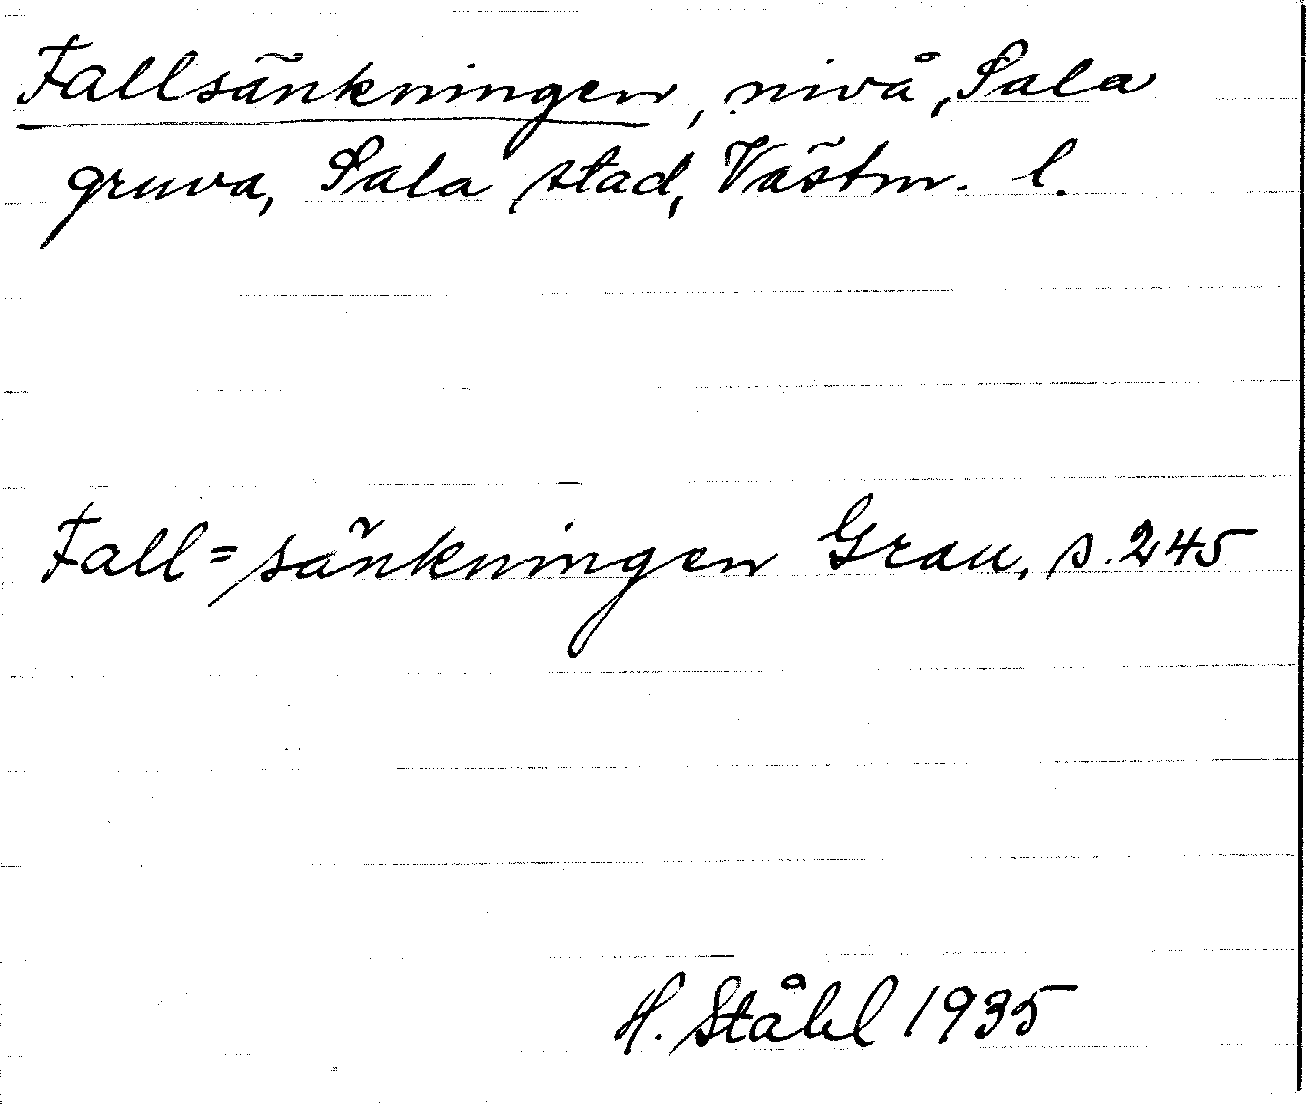 Fallsänkningen, nivå, Sala
gruva, Sala stad, Västm. l.
Fall=sänkningen Grau, s. 245
H. Ståhl 1935